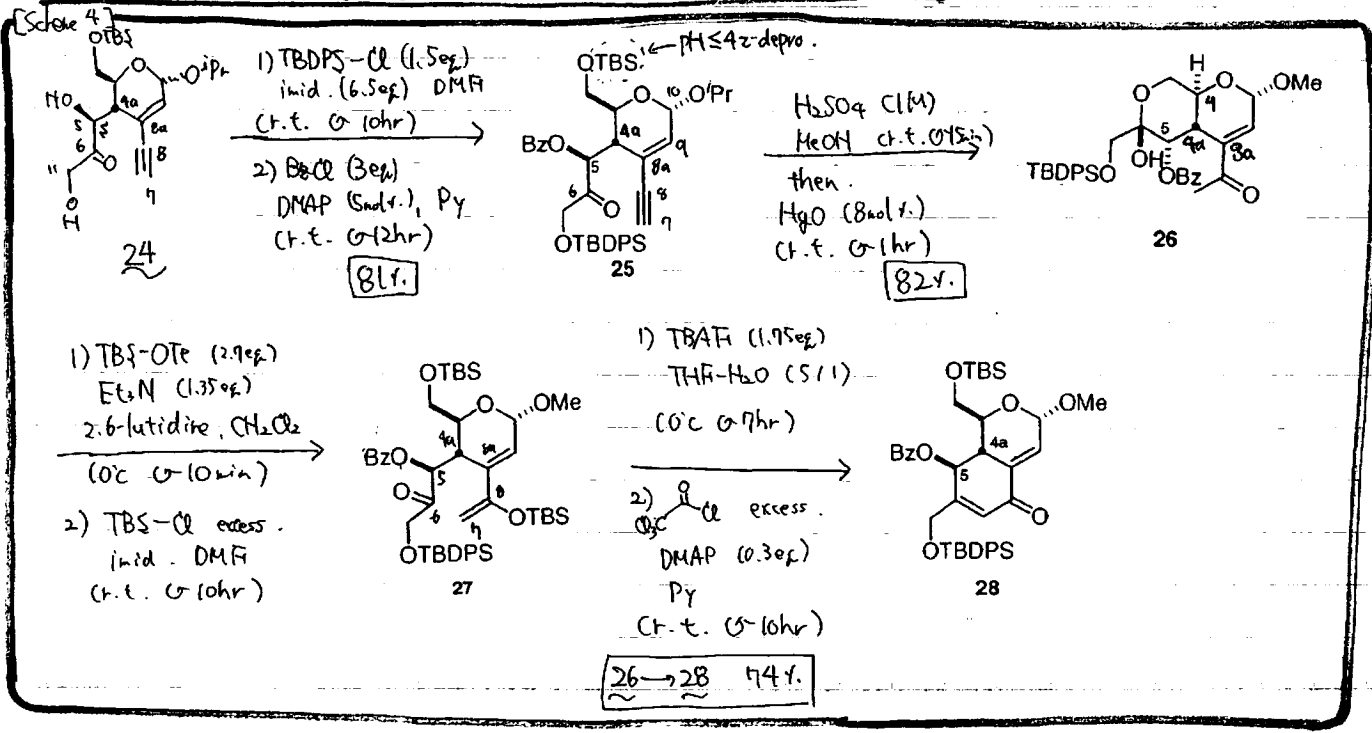 [Scheme 4]
OTBS
O
O iPr
HO
4a
5
6
8a
8
7
O
11
O
H
24
1) TBDPS-Cl (1.5eq)
imid. (6.5eq) DMF
(r.t. 10hr)
2) BzCl (3eq)
DMAP (5mol%), Py
(r.t. 12hr)
81%
OTBS
←pH≤4で depro.
O
10
OiPr
4a
9
BzO
5
8a
6
8
O
7
OTBDPS
25
H2SO4 (1M)
MeOH (r.t. 45min)
then.
HgO (8mol%)
(r.t. 1hr)
82%
H
O
O
OMe
4
5
4a
8a
OH
TBDPSO
OBz
O
26
1) TBS-OTf (2.7eq)
Et3N (1.35eq)
2.6-lutidine, CH2Cl2
(0℃ 10min)
2) TBS-Cl excess.
imid. DMF
(r.t. 10hr)
OTBS
O
OMe
4a
8a
BzO
5
8
O
6
7
OTBS
OTBDPS
27
1) TBAF (1.75eq)
THF-H2O (5/1)
(0℃ 7hr)
2)
O
Cl3C
Cl
excess.
DMAP (0.3eq)
Py
(r.t. 10hr)
26→28 74%
OTBS
O
OMe
4a
BzO
5
O
OTBDPS
28